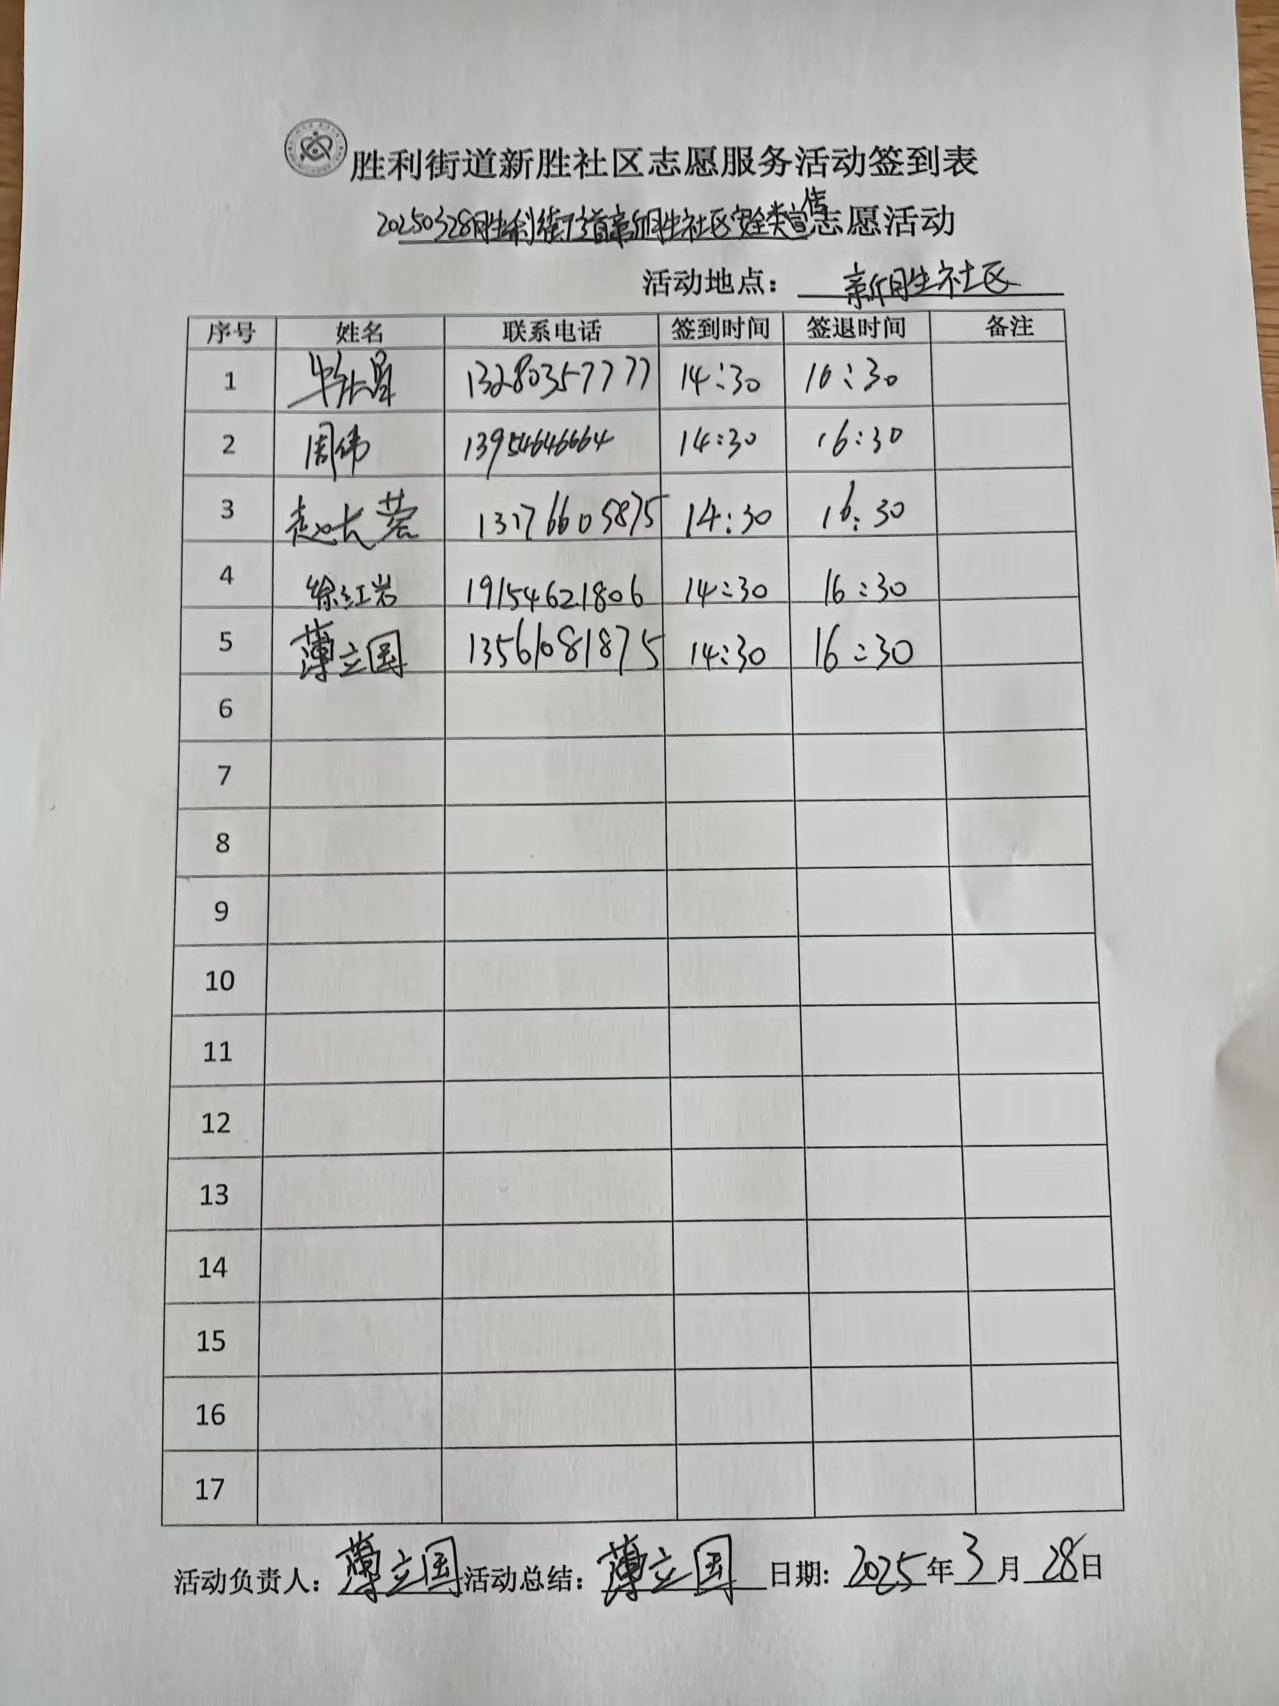 胜利街道新胜社区志愿服务活动签到表
20250328胜利街道新胜社区安全类宣传志愿活动
活动地点：新胜社区
序号 姓名 联系电话 签到时间 签退时间 备注
1 13280357777 14:30 16:30
2 周伟 13954646664 14:30 16:30
3 赵长蓉 13176605875 14:30 16:30
4 徐红岩 19154621806 14:30 16:30
5 薄立国 13561081875 14:30 16:30
6
7
8
9
10
11
12
13
14
15
16
17
活动负责人：薄立国 活动总结：薄立国 日期：2025年3月28日